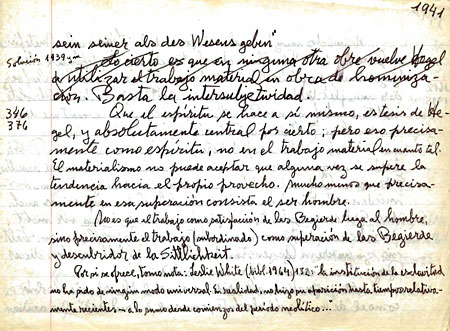 1941
sein seiner als des Wesens geben"
Solución 1939
Lo cierto es que en ninguna otra obra vuelve Hegel
a utilizar el trabajo material en obra de hominiza-
ción. Basta la intersubjetividad.
346
376
Que el espíritu se hace a sí mismo, es tesis de He-
gel, y absolutamente central por cierto; pero eso precisa-
mente como espíritu, no en el trabajo material en cuanto tal.
El materialismo no puede aceptar que alguna vez se supere la
tendencia hacia el propio provecho. Mucho menos que precisa-
mente en esa superación consista el ser hombre.
No es que el trabajo como satisfacción de las Begierde haga al hombre,
sino precisamente el trabajo (subordinado) como superación de las Begierde
y descubridor de la Sittlichkeit.
Por si se ofrece, tomo nota: Leslie White 1964) 132: "la institución de la esclavitud
no ha sido de ningún modo universal. En realidad, no hizo su aparición hasta tiempos relativa-
mente recientes — a lo sumo desde comienzos del período neolítico..."